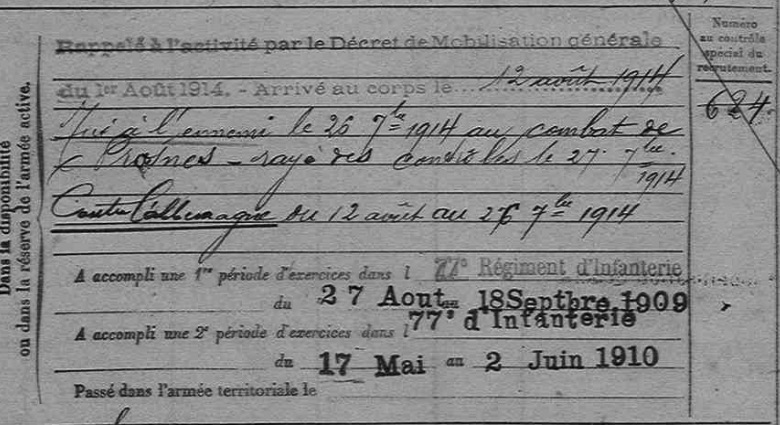 Numéro
au contrôle
spécial du
recrutement.
624
Dans la disponibilité
ou dans la réserve de l'armée active.
Rappelé à l'activité par le Décret de Mobilisation générale
du 1er Août 1914. - Arrivé au corps le 12 août 1914
Tué à l'ennemi le 26 7bre 1914 au combat de
Prosnes - rayé des contrôles le 27 7bre
1914
Contre l'allemagne du 12 août au 26 7bre 1914
A accompli une 1re période d'exercices dans l 77e Régiment d'Infanterie
du 27 Aout au 18 Septbre 1909
A accompli une 2e période d'exercices dans l 77e d'Infanterie
du 17 Mai au 2 Juin 1910
Passé dans l'armée territoriale le